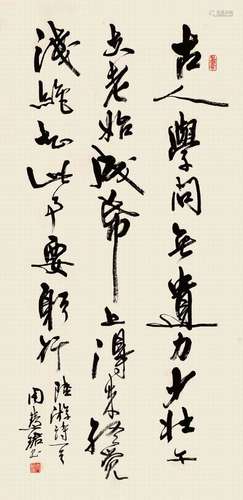 古人學問無遺力少壯工
夫老始成帋上得來終覺
淺絕知此事要躬行 陸游詩
周慧珺